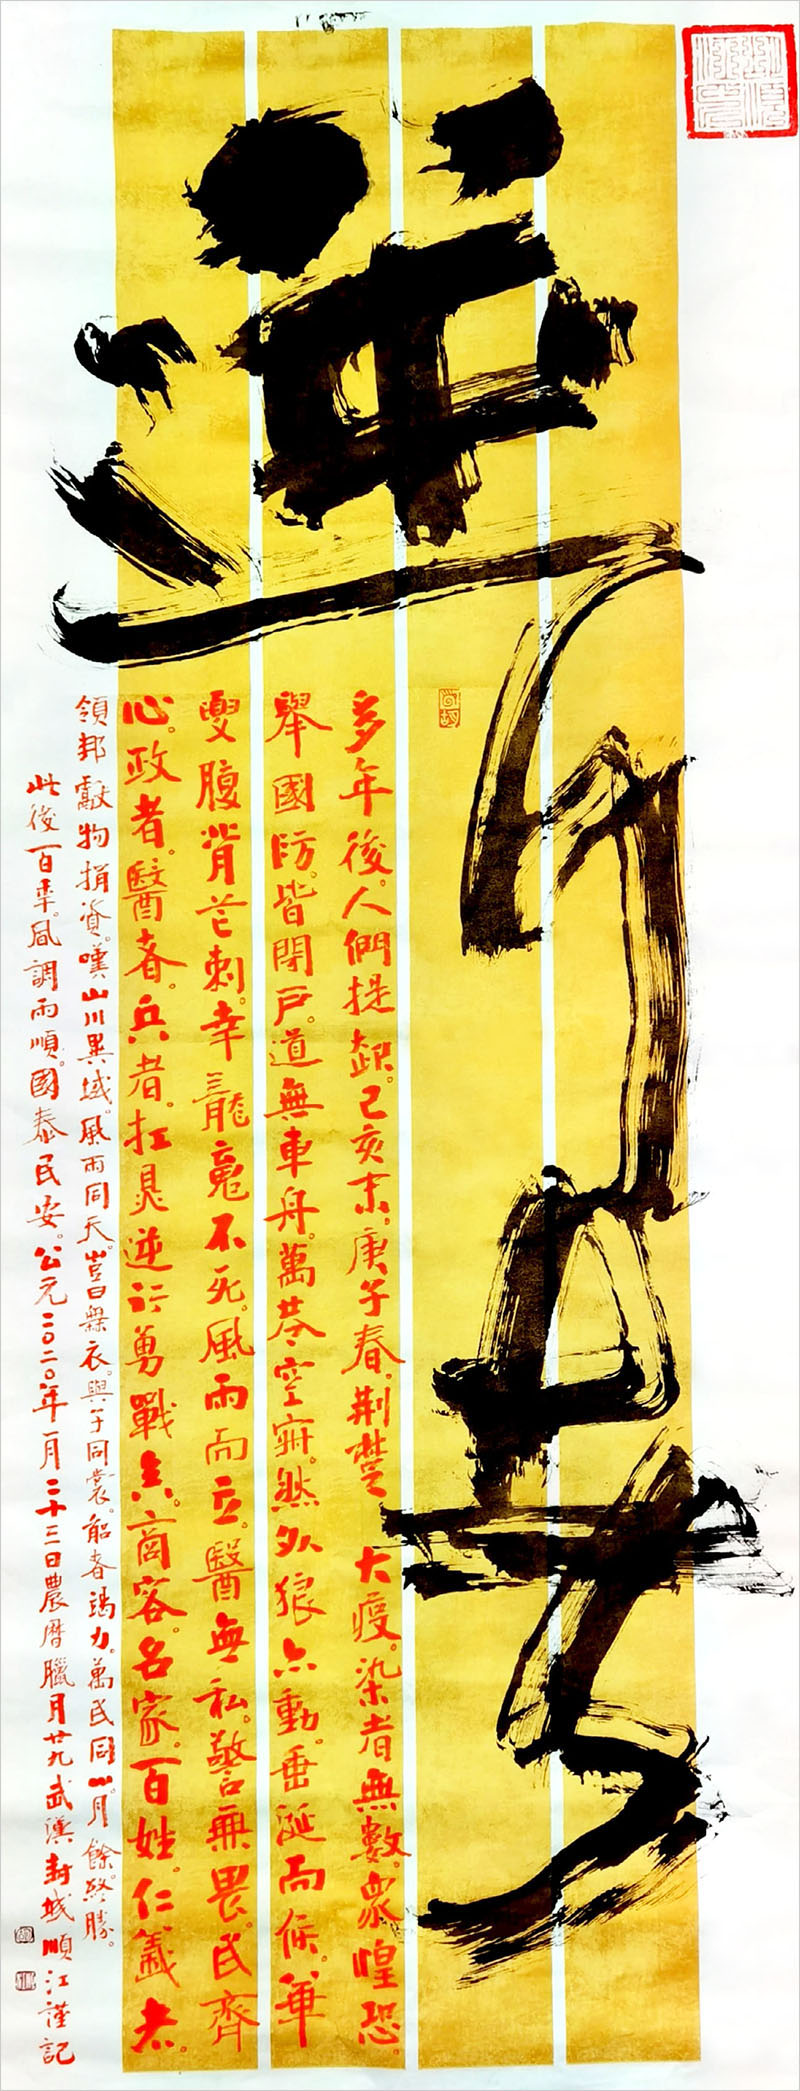 多年後。人們提起。己亥末。庚子春。荆楚大疫。染者無數。眾惶恐。
舉國防。皆閉戶。道無車舟。萬巷空寂。然外狼亦動。垂涎而候。華
夏腹背芒刺。幸龍魂不死。風雨而立。醫無私。警無畏。民齊
心。政者。醫者。兵者。扛鼎逆行勇戰矣。商客。名家。百姓。仁義者。
領邦獻物捐資。嘆山川異域。風雨同天。豈曰無衣。與子同裳。能者竭力。萬民同心。月餘。終勝。
此後百年。風調雨順。國泰民安。公元二〇二〇年一月二十三日農曆臘月廿九武漢封城順江謹記